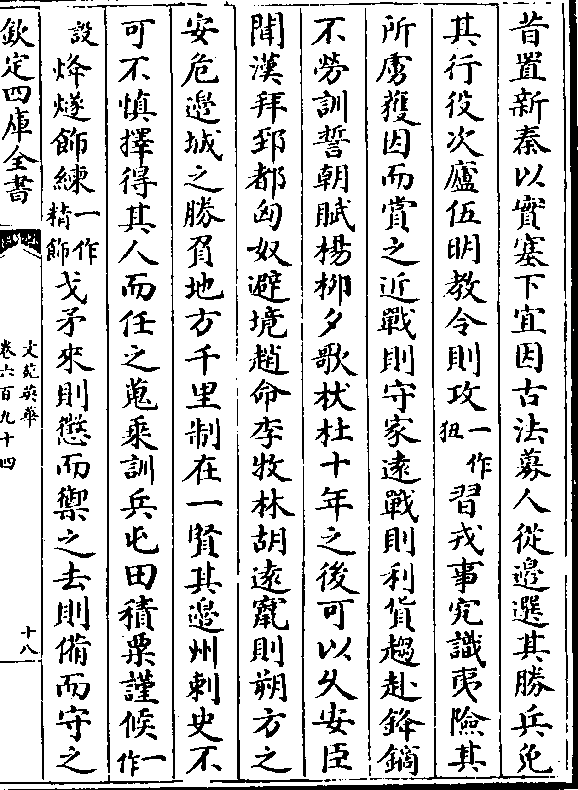 昔置新秦以實塞下宜因古法募人從邊選其勝兵免
其行役次廬伍明教令則攻一作狃習戎事究識夷險其
所虜獲因而賞之近戰則守家遠戰則利貨趨赴鋒鏑
不勞訓誓朝賦楊柳夕歌杕杜十年之後可以久安臣
聞漢拜郅都匈奴避境趙命李牧林胡遠竄則朔方之
安危邊城之勝負地方千里制在一賢其邊州刺史不
可不慎擇得其人而任之蒐乘訓兵屯田積粟謹候一作
設烽燧飾練一作精飾戈矛來則懲而禦之去則備而守之
欽定四庫全書
文苑英華
卷六百九十四
十八